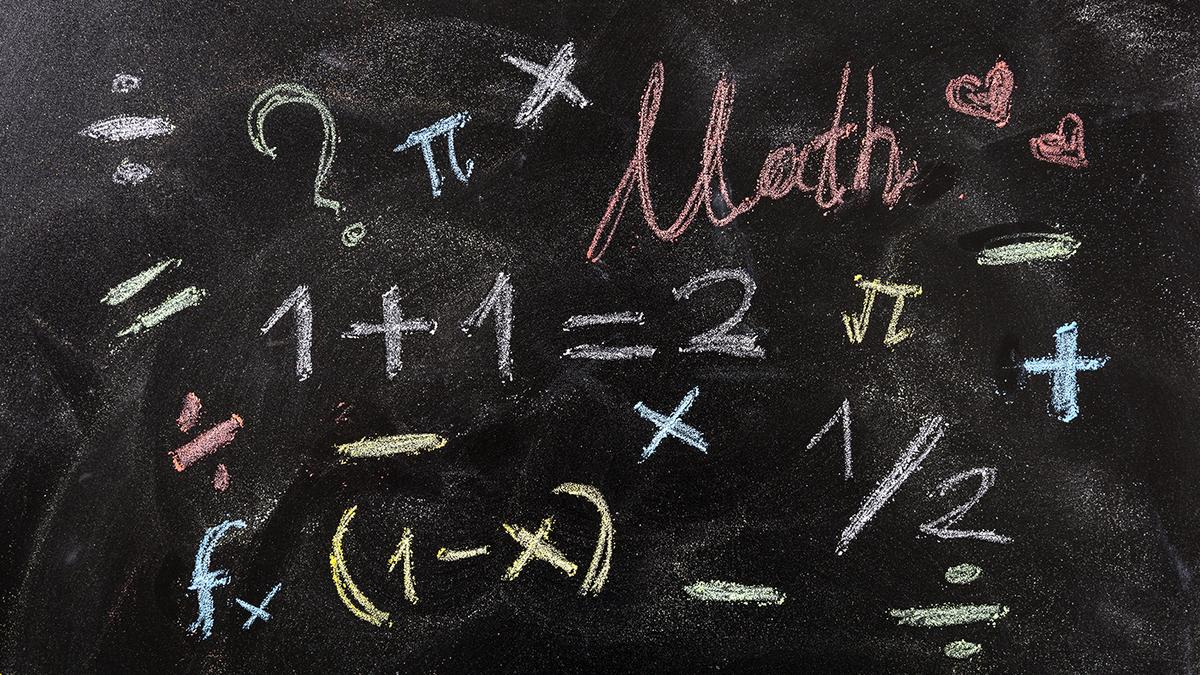 ÷ ? π × Math ♥ ♥
= 1+1=2 π − +
÷ − × 1/2
fx (1-x) − ÷